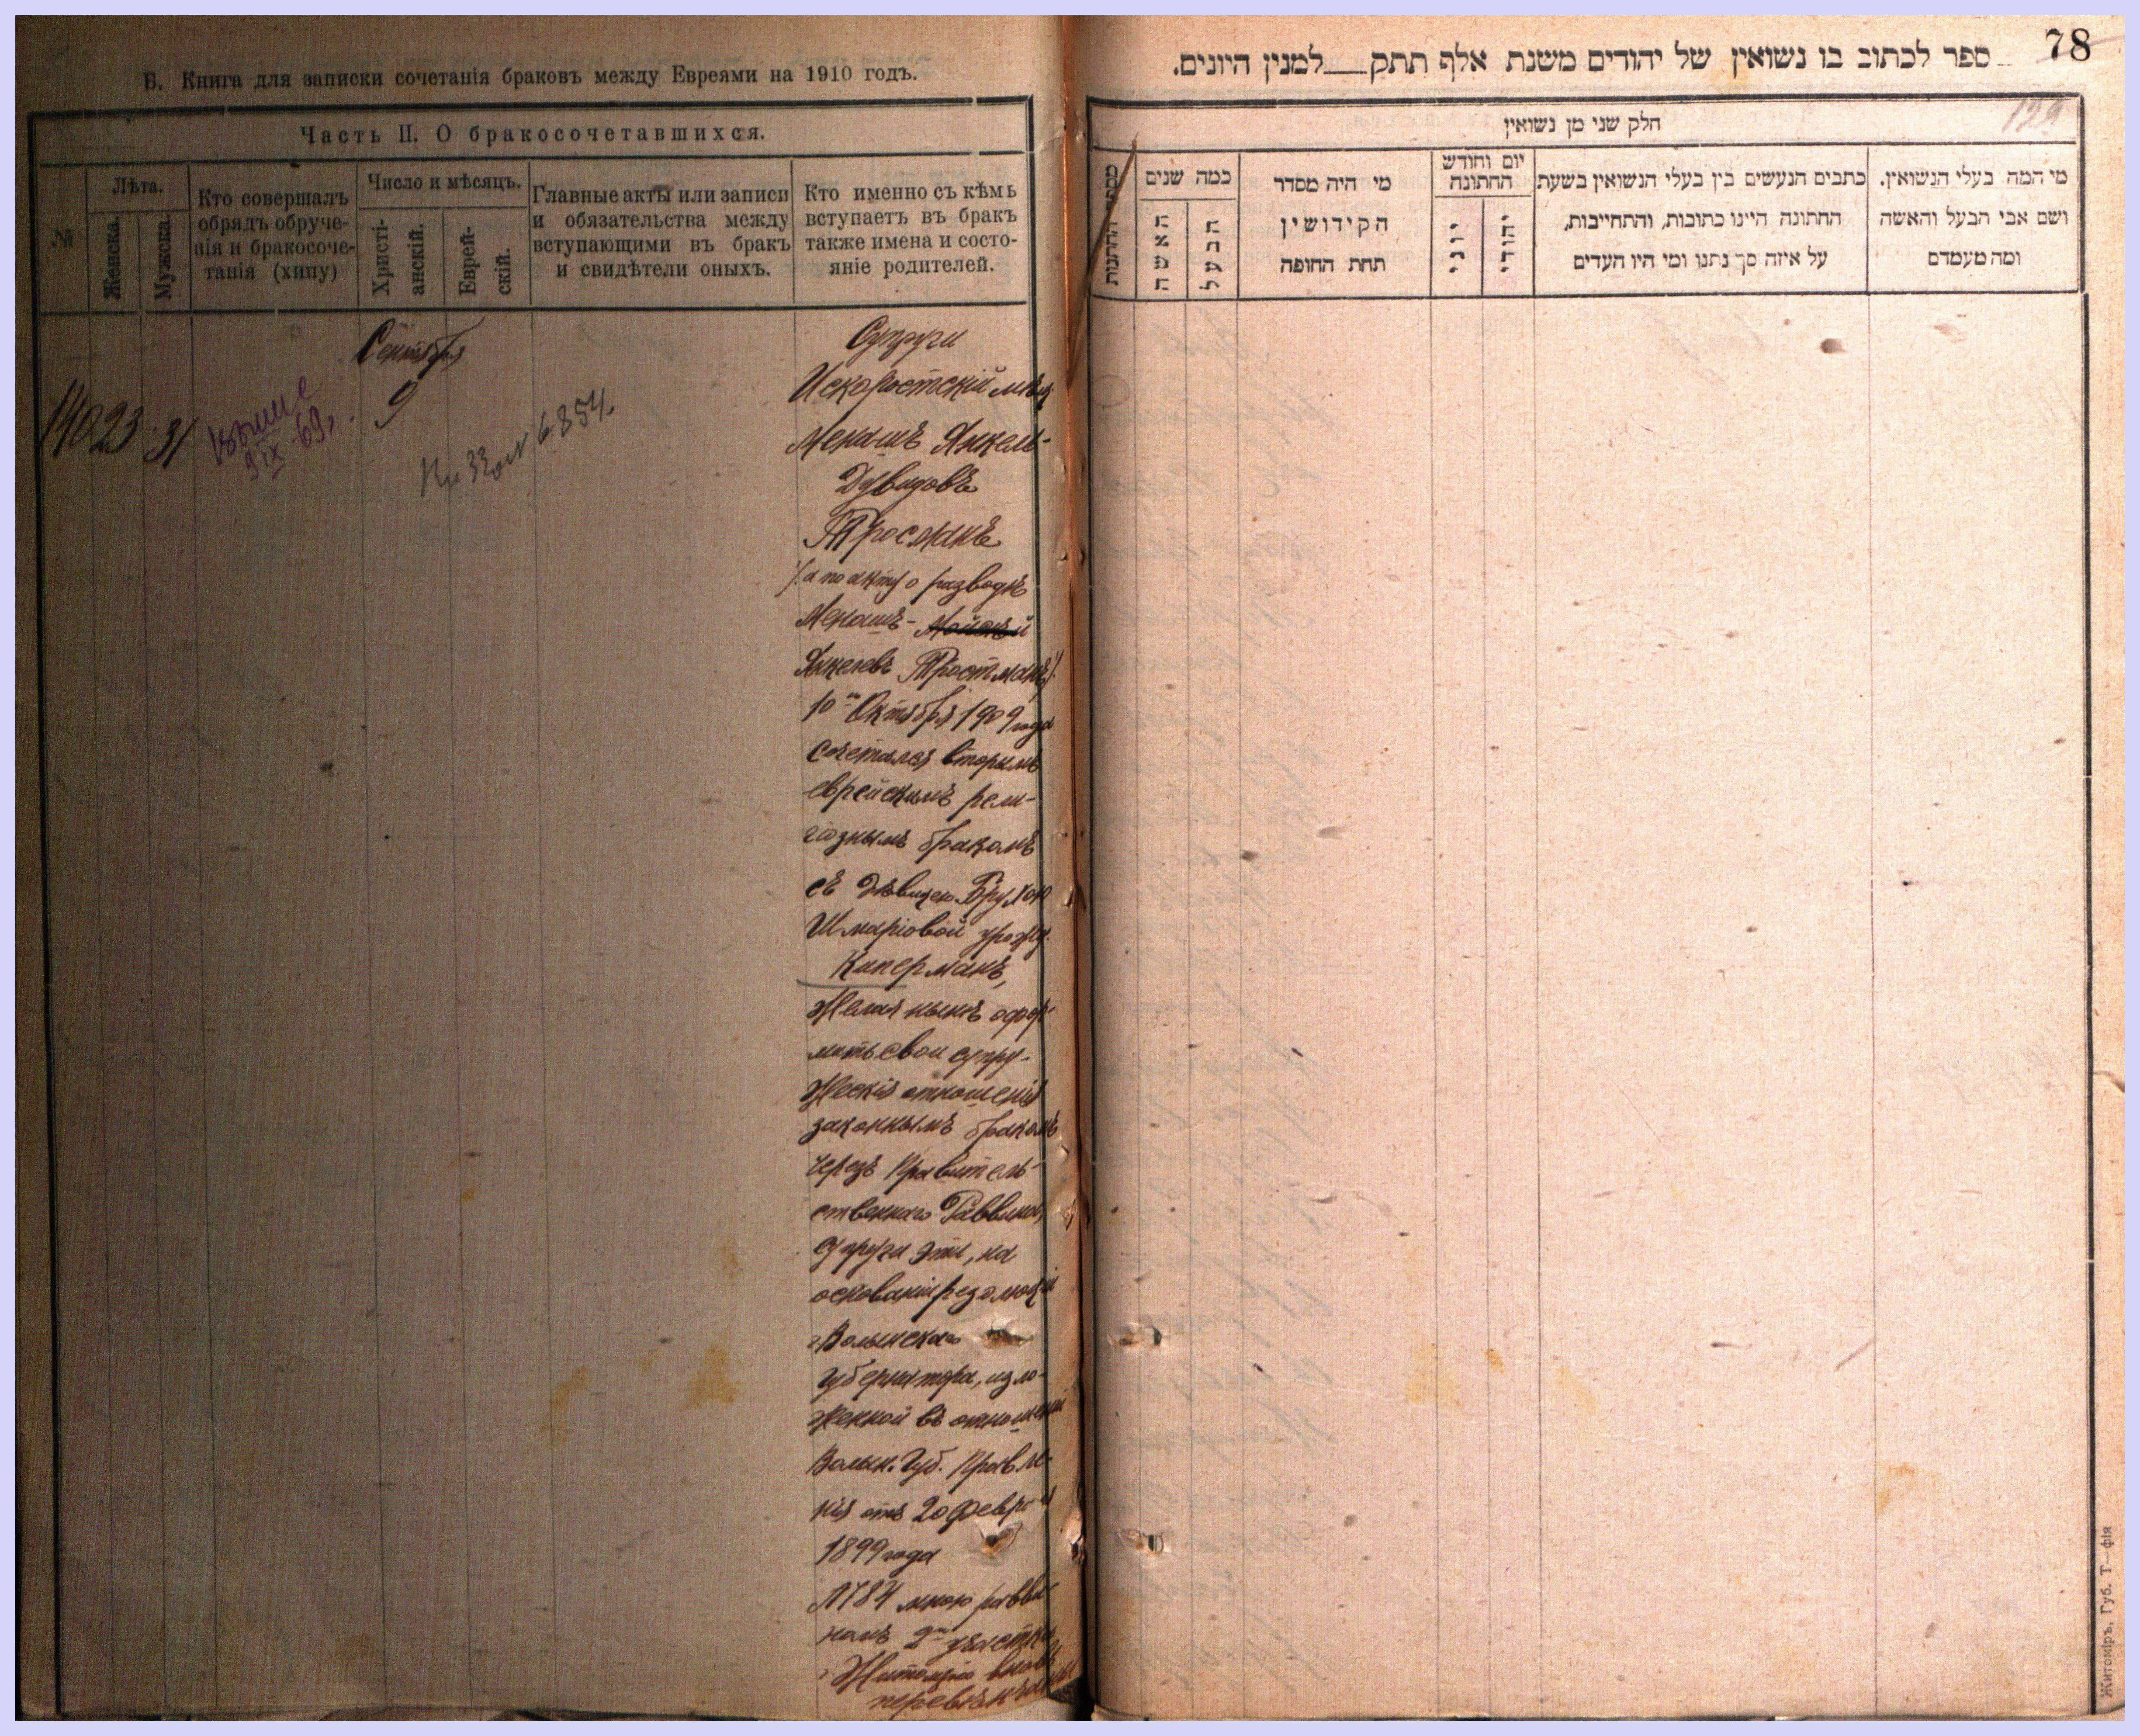 Б. Книга для записки сочетанія браковъ между Евреями на 1910 годъ.
Часть II. О бракосочетавшихся.
№
Лѣта.
Женска.
Мужска.
Кто совершалъ
обрядъ обруче-
нія и бракосоче-
танія (хипу)
Число и мѣсяцъ.
Христі-
анскій.
Еврей-
скій.
Главные акты или записи
и обязательства между
вступающими въ бракъ
и свидѣтели оныхъ.
Кто именно съ кѣмъ
вступаетъ въ бракъ
также имена и состо-
яніе родителей.
Сентября
140 23 31
9
9 IX 69
6854.
Супруги
Искоростскій мѣщ.
Менашъ Янкель-
Дувидовъ
Тросманъ
/:а по акту о разводѣ
Менашъ-
Янкелевъ Тростманъ:/
10го Октября 1909 года
сочетался вторымъ
еврейскимъ рели-
гіознымъ бракомъ
съ дѣвицею Брухою
Шмаріовой урожд.
Киперманъ,
желая нынѣ офор-
мить свои супру-
жескія отношенія
законнымъ бракомъ
черезъ Правитель-
ственнаго Раввина,
супруги эти, на
основаніи резолюціи
г. Волынскаго
Губернатора, изло-
женной въ отношеніи
Волын. Губ. Правле-
нія отъ 20 Февраля
1899 года
№ 784 мною равви-
номъ 2го участка
г. Житоміра вновь
перевѣнчаны
78
ספר לכתוב בו נשואין של יהודים משנת אלף תתק___למנין היונים.
129
חלק שני מן נשואין
מספר החתונות
כמה שנים
האשה
הבעל
מי היה מסדר
הקידושין
תחת החופה
יום וחודש
החתונה
יוני
יהודי
כתבים הנעשים בין בעלי הנשואין בשעת
החתונה היינו כתובות, והתחייבות,
על איזה סך נתנו ומי היו העדים
מי המה בעלי הנשואין.
ושם אבי הבעל והאשה
ומה מעמדם
Житоміръ, Губ. Т—фія